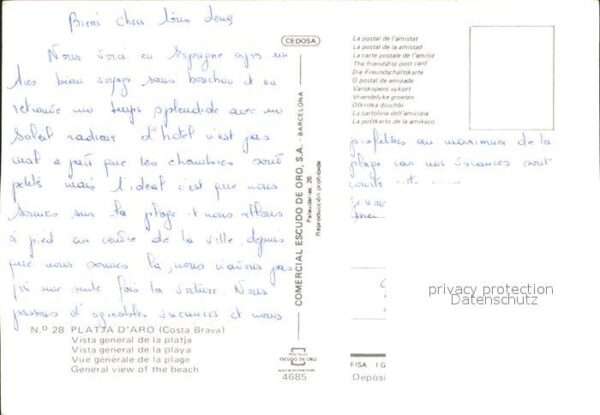 Bieni chers tous deux
Nous voici en Espagne après un
très beau voyage sans bouchon et on
retrouve un temps splendide avec un
soleil radieux d'hôtel n'est pas
mal a part que les chambres sont
petits mais l'ideal c'est que nous
sommes sur la plage et nous allons
à pied au centre de la ville depuis
que nous sommes là nous n'avons pas
pris une seule fois la voiture. Nous
passons d'agréables vacances et nous
N.º 28 PLATJA D'ARO (Costa Brava)
Vista general de la platja
Vista general de la playa
Vue générale de la plage
General view of the beach
CEDOSA
COMERCIAL ESCUDO DE ORO, S.A. - BARCELONA
Palaudarias, 26
Reproducción prohibida
POSTALES
ESCUDO DE ORO
4685
La postal de l'amistat
La postal de la amistad
La carte postale de l'amitié
The friendship post card
Die Freundschaftskarte
O postal de amizade
Vanskapens vykort
Vriendelijke groeten
Otkritka druchbi
La cartolina dell'amicizia
La poŝtkarto de la amikeco
profitons au maximum de la
plage car nos vacances sont
courts
privacy protection
Datenschutz
FISA - I.G
Depósi